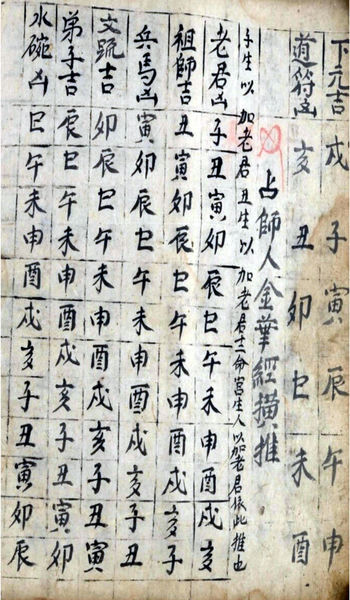 下元吉戌子寅辰午申
道符凶亥丑卯巳未酉
占師人金華經横推
子生以加老君丑生以加老君十二命宫生人以加老君依此推也
老君凶子丑寅卯辰巳午未申酉戌亥
祖師吉丑寅卯辰巳午未申酉戌亥子
兵馬凶寅卯辰巳午未申酉戌亥子丑
文疏吉卯辰巳午未申酉戌亥子丑寅
弟子吉辰巳午未申酉戌亥子丑寅卯
水碗凶巳午未申酉戌亥子丑寅卯辰